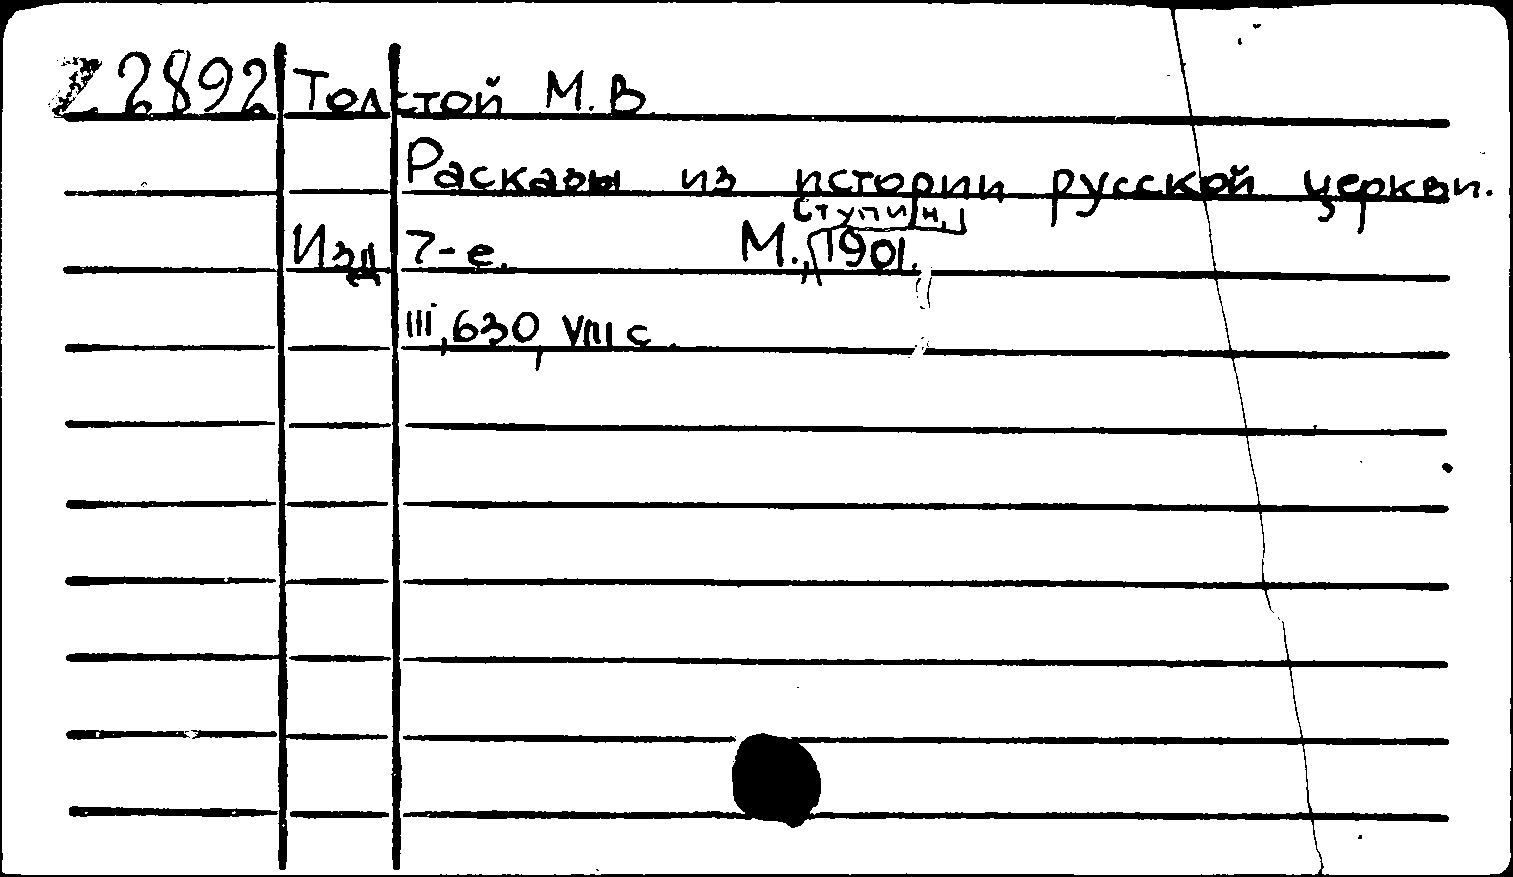 Z 2892 Толстой М. В.
Расказы из истории русской церкви.
Ступин,
Изд 7-е. М., 1901.
III, 630, VIII с.